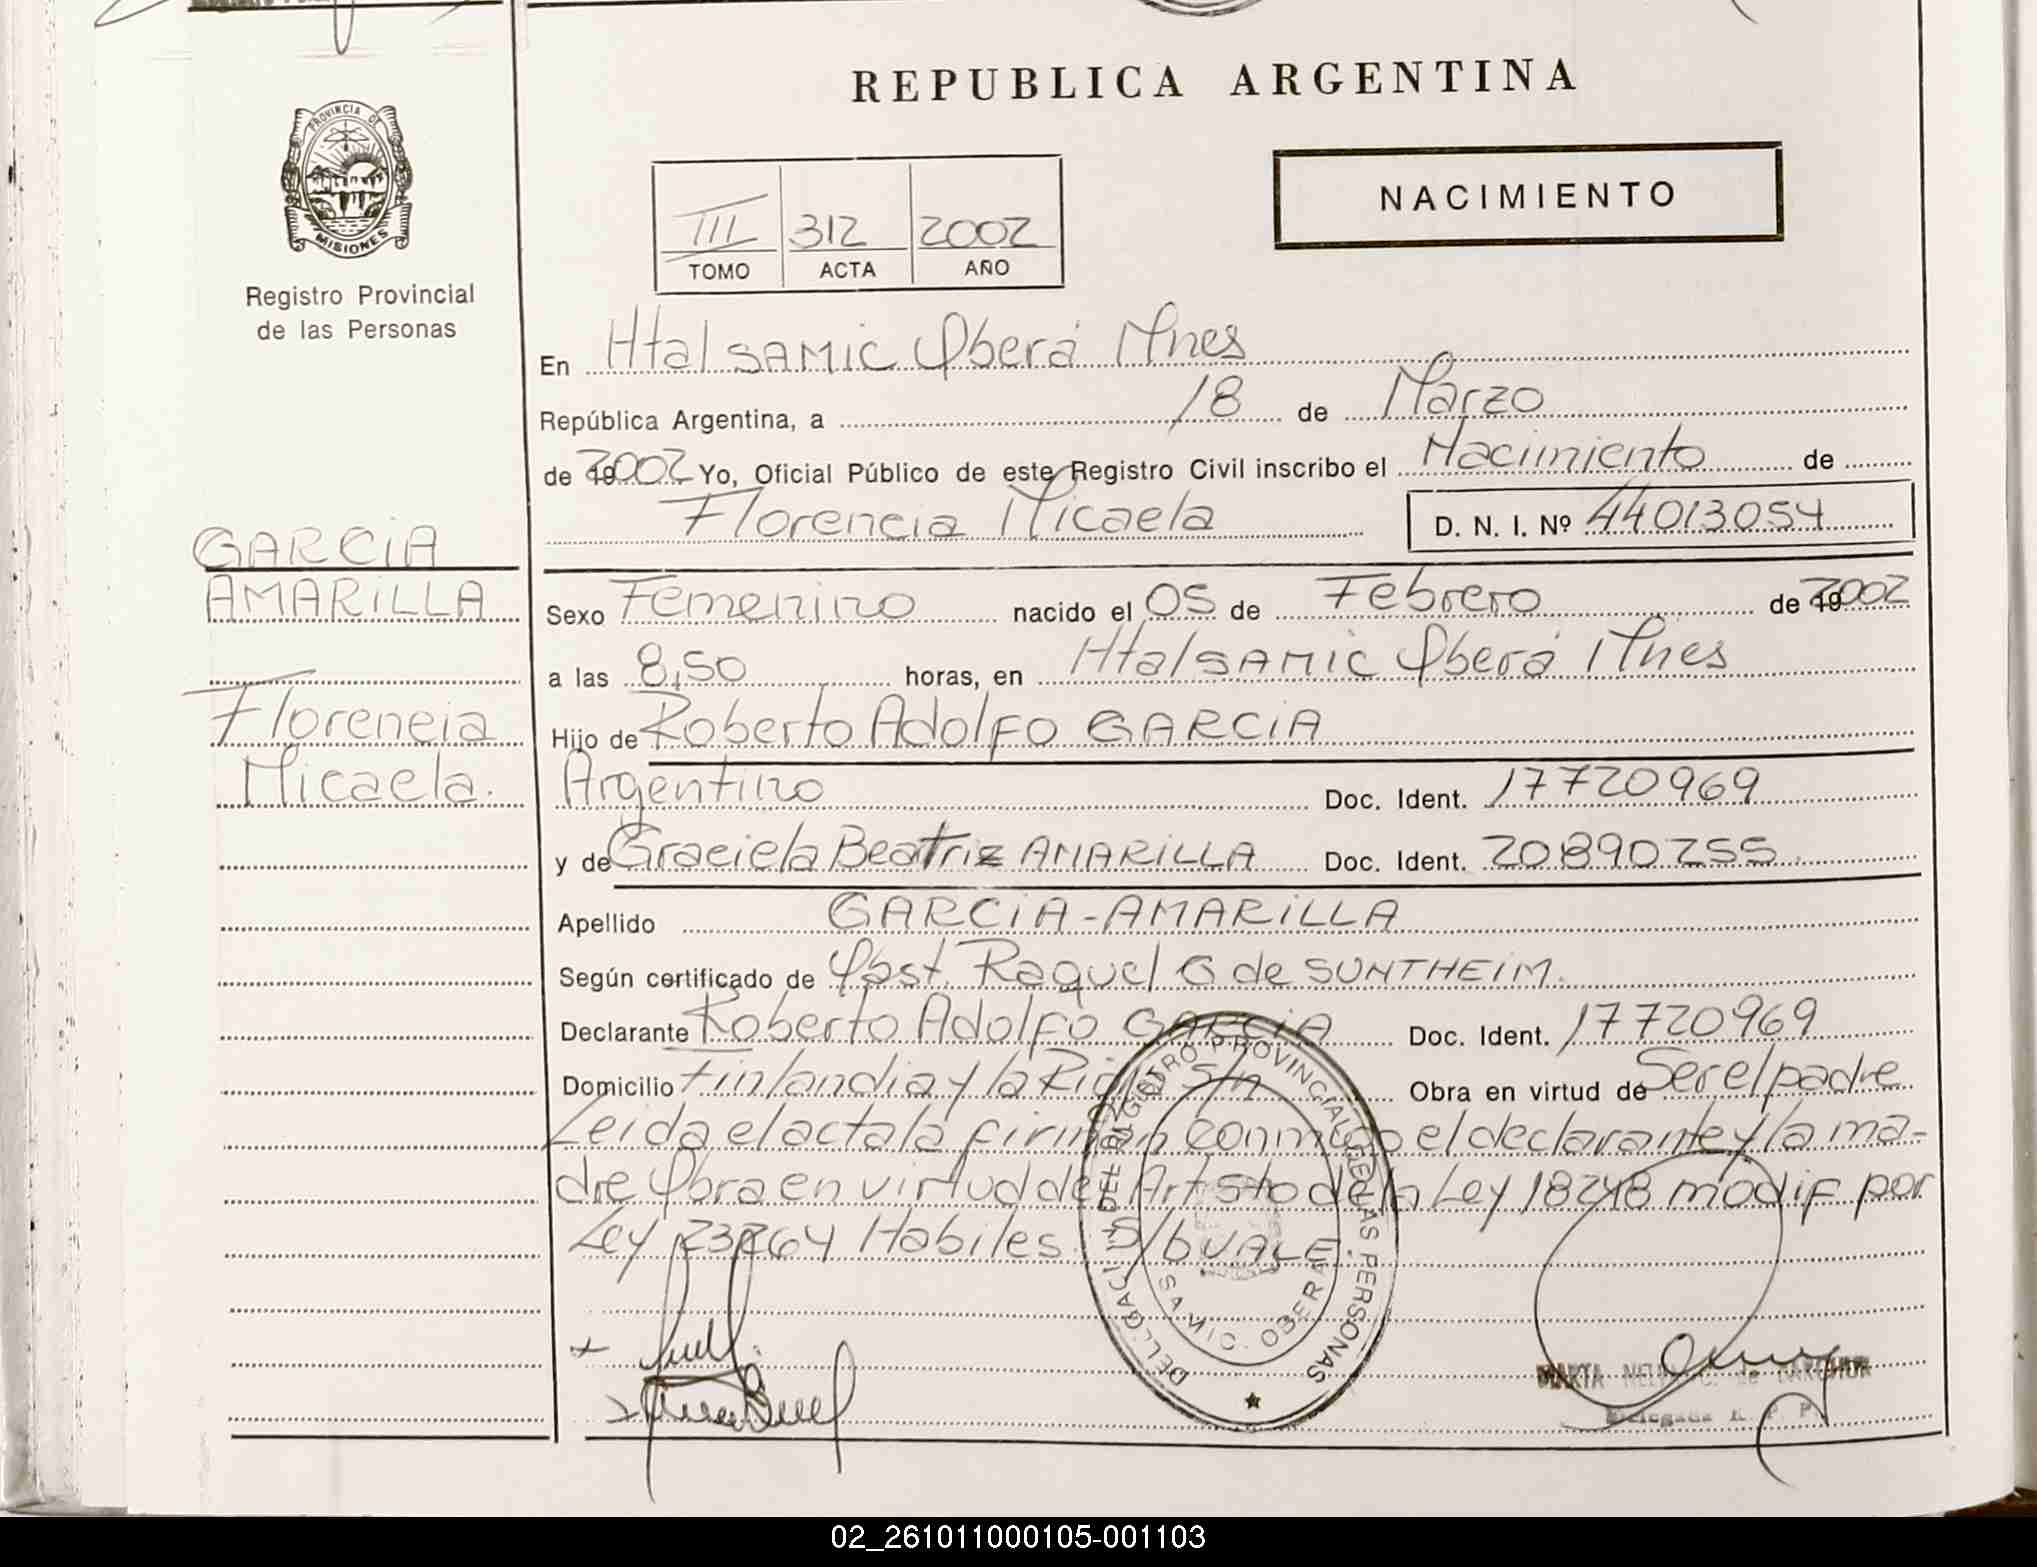 REPUBLICA ARGENTINA
PROVINCIA DE
MISIONES
Registro Provincial
de las Personas
NACIMIENTO
III 312 2002
TOMO ACTA AÑO
En Htal SAMIC Oberá Mnes
República Argentina, a 18 de Marzo
de 2002 Yo, Oficial Público de este Registro Civil inscribo el Nacimiento de
Florencia Micaela D. N. I. Nº 44013054
GARCIA
AMARILLA
Florencia
Micaela.
Sexo Femenino nacido el 05 de Febrero de 2002
a las 8,50 horas, en Htal SAMIC Oberá Mnes
Hijo de Roberto Adolfo GARCIA
Argentino Doc. Ident. 17720969
y de Graciela Beatriz AMARILLA Doc. Ident. 20890255
Apellido GARCIA-AMARILLA
Según certificado de Obst. Raquel G de SUNTHEIM.
Declarante Roberto Adolfo GARCIA Doc. Ident. 17720969
Domicilio Finlandia y la Rioja S/n Obra en virtud de Ser el padre
Leida el acta la firman conmigo el declarante y la ma-
dre Obra en virtud del Art 5to de la Ley 18248 modif por
Ley 23264 Habiles S/b VALE
REGISTRO PROVINCIAL DE LAS PERSONAS
SAMIC. OBERA
MARTA
Delegada R. P. P.
02_261011000105-001103